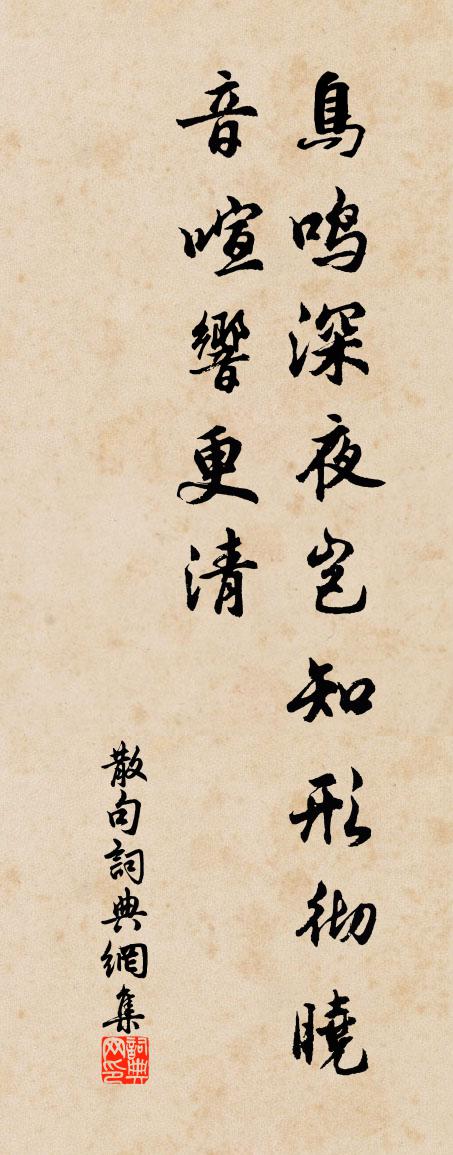 鳥鸣深夜岂知形彻曉
音喧響更清
散句詞典網集
詞典网印